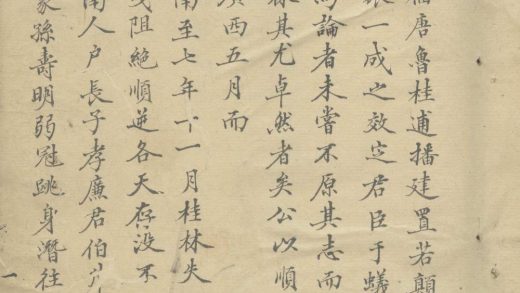 唐魯桂逋播建置若顛
一成之效定君臣于蟻
論者未嘗不原其志而
其尤卓然者矣公以順
五月而
南至七年十一月桂林失
阻絶順逆各天存没不
南人戶長子孝廉君伯
孫壽明弱冠跳身潛往